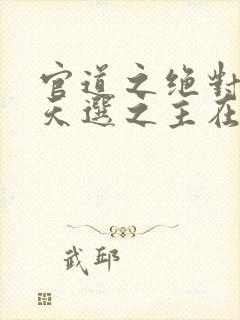 官道之绝對
天選之主在
武邱